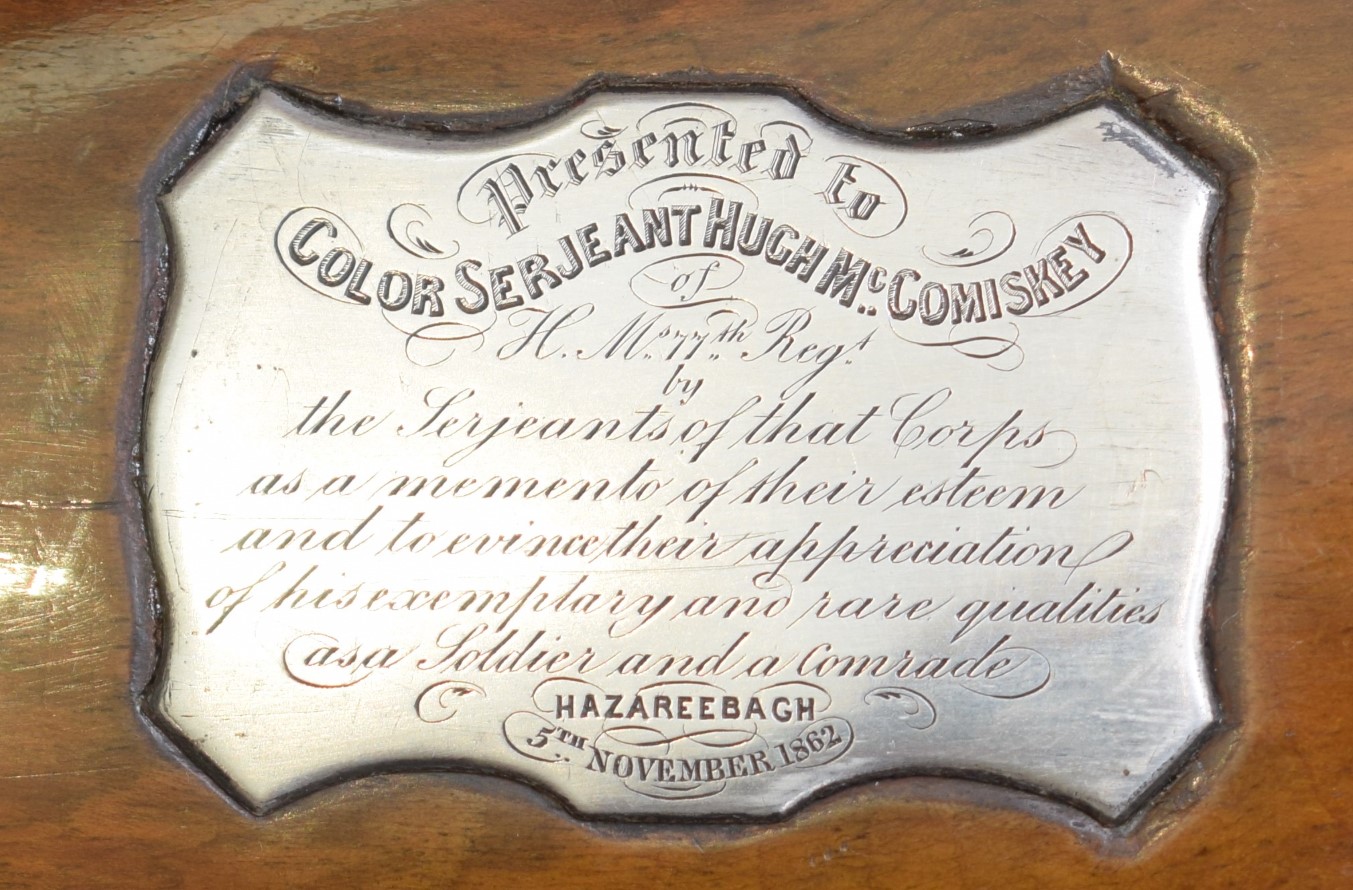 Presented to
COLOR SERJEANT HUGH Mc. COMISKEY
of
H. M.s 77th Regt.
by
the Serjeants of that Corps
as a memento of their esteem
and to evince their appreciation
of his exemplary and rare qualities
as a Soldier and a Comrade
HAZAREEBAGH
5TH NOVEMBER 1862